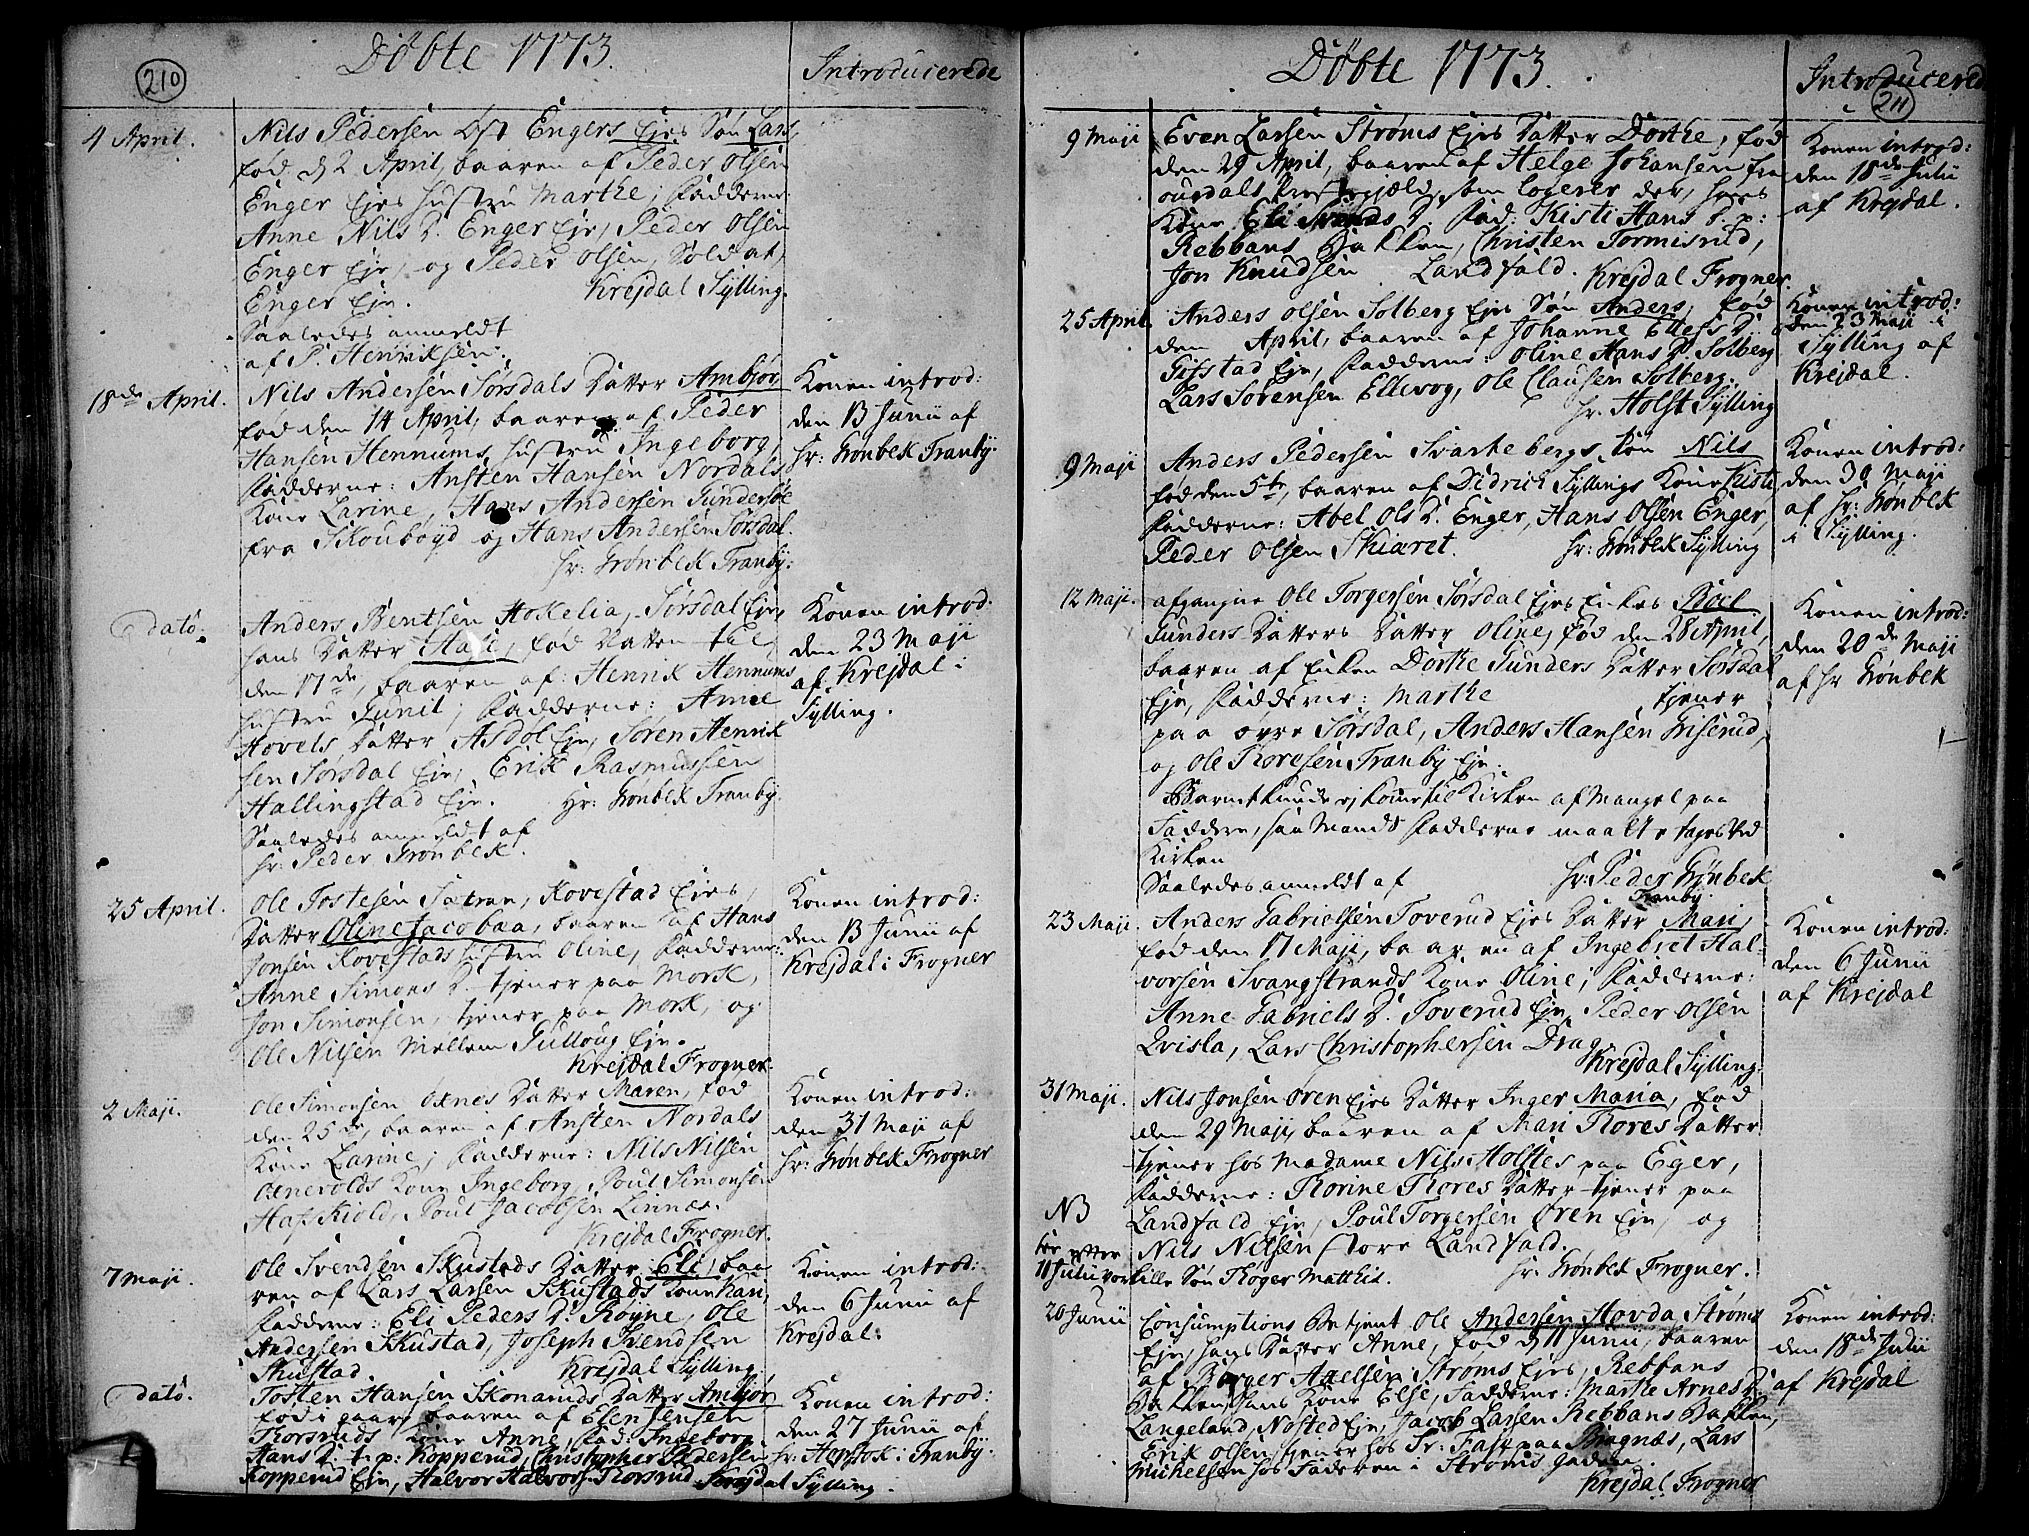 210
Døbte 1773.
Introducerede
4 April.
Nils Pedersen Øst Engers Ejes Søn Lars,
fød d 2 April, baaren af Peder Olsen
Enger Ejes hustru Marthe; Fadderne
Anne Nils D. Enger Eje, Peder Olsen
Enger Eje, og Peder Olsen, Soldat,
Enger Eje.
Krejdal Sylling.
Saaledes anmeldt
af P. Henriksen.
18de April.
Nils Andersen Sørsdals Datter Ambjør
fød den 14 April, baaren af Peder
Hansen Hennums hustru Ingeborg,
Fadderne: Ansten Hansen Nordals
Kone Larine, Hans Andersen Gundersøe
fra Skoubøyd og Hans Andersen Sørsdal.
hr: Grønbek Tranby.
Konen introd:
den 13 Junii af
hr: Grønbek Tranby.
dato.
Anders Bentsen Hokelia, Sørsdal Eje,
hans Datter, fød Natten til
den 17de, baaren af: Henrik Hennums
hustru Gunil; Fadderne: Anne
Hovels Datter Asdøl Eje, Søren Henrik
sen Sørsdal Eje, Erik Rasmussen
Hallingstad Eje. Hr: Grønbek Tranby.
Saaledes anmeldt af
hr: Peder Grønbek.
Konen introd:
den 23 Maji
af Krejdal i
Sylling.
25 April.
Ole Tostesen Sætran, Kovestad Ejes,
Datter Oline Jacobaa, baaren af Hans
Jonsen Kovestads hustru Oline, Fadderne:
Anne Simons D. tjener paa Morsk,
Jon Simonsen, tjener paa Morsk, og
Ole Nilsen Mellem Gulloug Eje.
Krejdal Frogner.
Konen introd:
den 13 Junii af
Krejdal i Frogner
2 Maji.
Ole Simonsen Oxnes Datter Maren, fød
den 25de, baaren af Ansten Nordals
Kone Larine; Fadderne: Nils Nilsen
Oxnevolds Kone Ingeborg, Poul Simonsen
Hafskiold, Poul Jacobsen Linnæs.
Krejdal Frogner.
Konen introd:
den 31 Maji af
hr: Grønbek Frogner
7 Maji.
Ole Svendsen Skustads Datter Eli, baa
ren af Lars Larsen Skustads Kone Kari,
Fadderne: Eli Peders D. Røyne, Ole
Andersen Skustad, Joseph Svendsen
Skustad. Krejdal Sylling.
Konen introd:
den 6 Junii af
Krejdal:
dato.
Tosten Hansen Skonaruds Datter Ambjør
fød i gaar, baaren af Elen Jensen
Korsruds Kone Anne, Fad: Ingeborg
Hans D. t. p: Kopperud, Christopher Pedersen
Kopperud Eje, Halvor Halvors. Korsrud. Krejdal Sylling.
Konen introd:
den 27 Junii af
hr: Hopstok i Tranby.
Døbte 1773.
Introducered
211
9 Maji
Even Larsen Strøms Ejes Datter Dorthe, fød
den 29 April, baaren af Helge Johansen fra
ourdals Præstegjæld, som logerer der, hans
Kone Eli D. Fad: Kisti Hans D. p:
Rebbans Bakken, Christen Tormisrud,
Jon Knudsen Landfald. Krejdal Frogner.
Konen introd:
den 18de Julii
af Krejdal.
25 April.
Anders Olsen Solberg Ejes Søn Anders, fød
den April, baaren af Johanne Ellefs D.
Gifstad Eje, Fadderne: Oline Hans D. Solberg
Lars Sørensen Ellevog, Ole Clausen Solberg.
hr: Holst Sylling
Konen introd:
den 23 Maji i
Sylling af
Krejdal.
9 Maji
Anders Pedersen Svartebergs Søn Nils
fød den 5te, baaren af Didrich Syllings Kone Kisti
Fadderne: Abel Ols D. Enger, Hans Olsen Enger,
Peder Olsen Skiaret. hr: Grønbek Sylling
Konen introd:
den 30 Maji
af hr: Grønbek
i Sylling.
12 Maji.
afgangne Ole Torgersen Sørsdal Ejes Enkes Boel
Gunders Datters Datter Oline, fød den 28 April,
baaren af Enken Dorthe Gunders Datter Sørsdal
Eje, Fadderne: Marthe tjener
paa øvre Sørsdal, Anders Hansen Griserud,
og Ole Thoresen Tranby Eje.
Barnet kunde ej komme til Kirken af Mangel paa
Faddere, saa Mands Fadderne maatte tages ved
Kirken
Saaledes anmeldt af hr: Peder Grønbek
Tranby.
Konen introd:
den 20de Maji
af hr Grønbek
23 Maji.
Anders Gabrielsen Toverud Ejes Datter Mari,
fød den 17 Maji, baaren af Ingebret Hal-
vorsen Svangstrands Kone Oline; Fadderne:
Anne Gabriels D. Toverud Eje, Peder Olsen
Qvisla, Lars Christophersen Drag.
Krejdal Sylling.
Konen introd:
den 6 Junii
af Krejdal
31 Maji.
Nils Jonsen Øren Ejes Datter Inger Maria, fød
den 29 Maji, baaren af Mari Thores Datter
tjener hos Madame Nils Holstes paa Eger,
Fadderne: Thorine Thores Datter tjener paa
Landfald Eje, Poul Torgersen Øren Eje, og
Nils Nilsen store Landfald.
hr: Grønbek Frogner.
NB
her efter
11 Julii vor lille Søn Thøger Matthis.
20 Junii
Consumptions Betjent Ole Andersen Hovda, Strøms
Eje, hans Datter Anne, fød d 11 Junii, baaren
af Børger Axelsen Strøms Ejes, Rebbans
Bakken, hans Kone Else, Fadderne: Marthe Arnes D.
Langeland, Nøsted Eje, Jacob Larsen Rebbans Bakken,
Erik Olsen, tjener hos Sr: Fast paa Bragnæs, Lars
Michelsen hos Faderen i Strøms gaden.
Krejdal Frogner
Konen introd:
den 18de Julii
af Krejdal